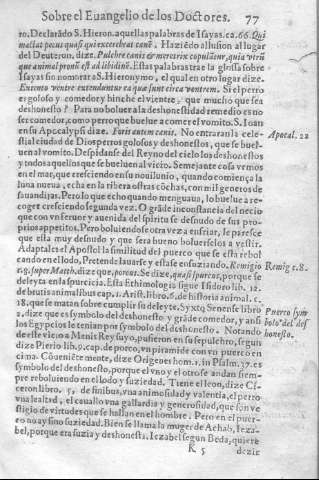 Sobre el Euangelio de los Doctores. 77
ro. Declarādo S. Hieron. aquellas palabras de Isayas. ca. 66. Qui
mactat pecus quasi qui excerebrat canē. Haziēdo allusion al lugar
del Deuteron. dize. Pulchre canis & meretrix copulātur, quia vtrū
que animal pronū est ad libidinē. Estas palabras trae la glossa sobre
Isayas sin nombrar a S. Hieronymo, el qual en otro lugar dize.
Extento ventre extenduntur ea quæ sunt circa ventrem. Si el perro
es goloso y comedor y hinche el vientre, que mucho que sea
deshonesto? Para no boluer a la deshonestidad remedio es no
ser comedor, como perro que buelue a comer el vomito. S. Ioan
en su Apocalypsi dize. Foris autem canis. No entraran la cele-
stial ciudad de Dios perros golosos y deshonestos, que se buel-
uen al vomito. Despidanse del Reyno del cielo los deshonestos
y todos aquellos que se bueluen al vicio. Semejante cosa vemos
en el mar, que cresciendo en su nouilunio, quando comiença la
luna nueua, echa en la ribera ostras cōchas, con mil generos de
sauandijas. Pero lo que echo quando menguaua, lo buelue a re-
coger cresciendo segunda vez. O grāde inconstancia del necio
que con vn feruor y auenida del spiritu se desnudo de sus pro-
prios appetitos. Pero boluiendose otra vez a enfriar, le paresce
que esta muy desnudo y que sera bueno boluerselos a vestir.
Adapta les el Apostol la similitud del puerco que se esta rebol
cando en el lodo, Pretende lauarse y estase ensuziando. Remigio
dize que, porcus. Se dize, quasi spurcus, porque se
deleyta en la spurcicia. Esta Ethimologia sigue Isidoro lib. 12.
de brutis animalibus cap. 1. Arist. libro. 6. de historia animal. c.
18. que se matan sobre cumplir su deleyte. Sexto Senense libro
2. dize que es symbolo del deshonesto y grāde comedor, y ansi
los Egypcios le tenian por symbolo del deshonesto. Notando
de este vicio a Menis Rey suyo, pusieron en su sepulchro, segun
dize Pierio lib. 9. cap. de porco, vn piramide con vn puerco en
cima. Cōuenientemente, dize Origenes hom. 1. in Psalm. 37. es
symbolo del deshonesto, porque el vno y el otro se andan siem-
pre reboluiendo en el lodo y suziedad. Tiene el leon, dize Ci-
ceron libro. 5. de finibus, vna animosidad y valentia, el perro
vna lealtad, el cauallo vna gallardia y generosidad, que son ve
stigio de virtudes que se hallan en el hombre. Pero en el puer-
co no ay sino suziedad. Bien se llama la muger de Achab, Ieza-
bel, porque era suzia y deshonesta. Iezabel segun Beda, quiere
K 5 dezir
Apocal. 22
Remig. t. 8.
Puerco sym
bolo del des
honesto.